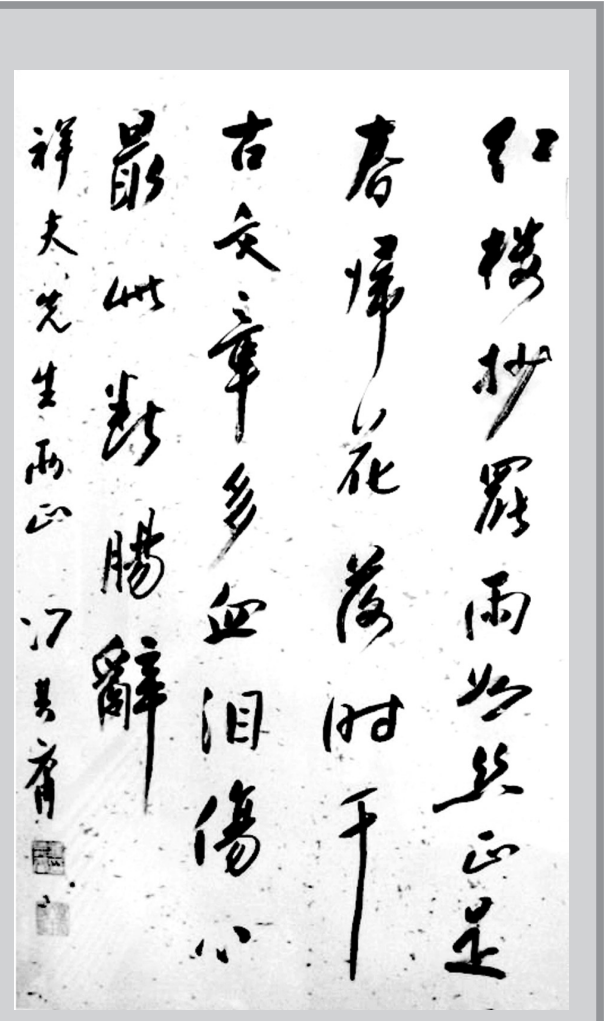 红楼抄罷雨如丝正是
春归花落时千
古文章多血泪傷心
最此断腸辭
祥夫先生両正 冯其庸